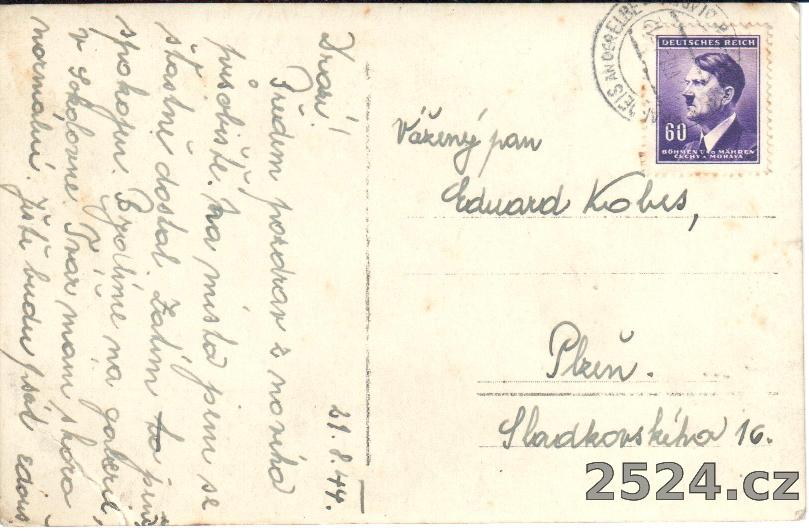 21.8.44.
Drazí!
Předem pozdrav z nového
působiště. Na místo jsem se
šťastně dostal. Zatím to jsem
spokojen. Bydlíme na galerii,
v Sokolovně. Tvar mám skoro
normální. Ještě budu psát
DEUTSCHES REICH
60
BÖHMEN u. MÄHREN
ČECHY a MORAVA
AN DER ELBE
Vážený pan
Eduard Kobes,
Plzeň.
Sladkovského 16.
2524.cz